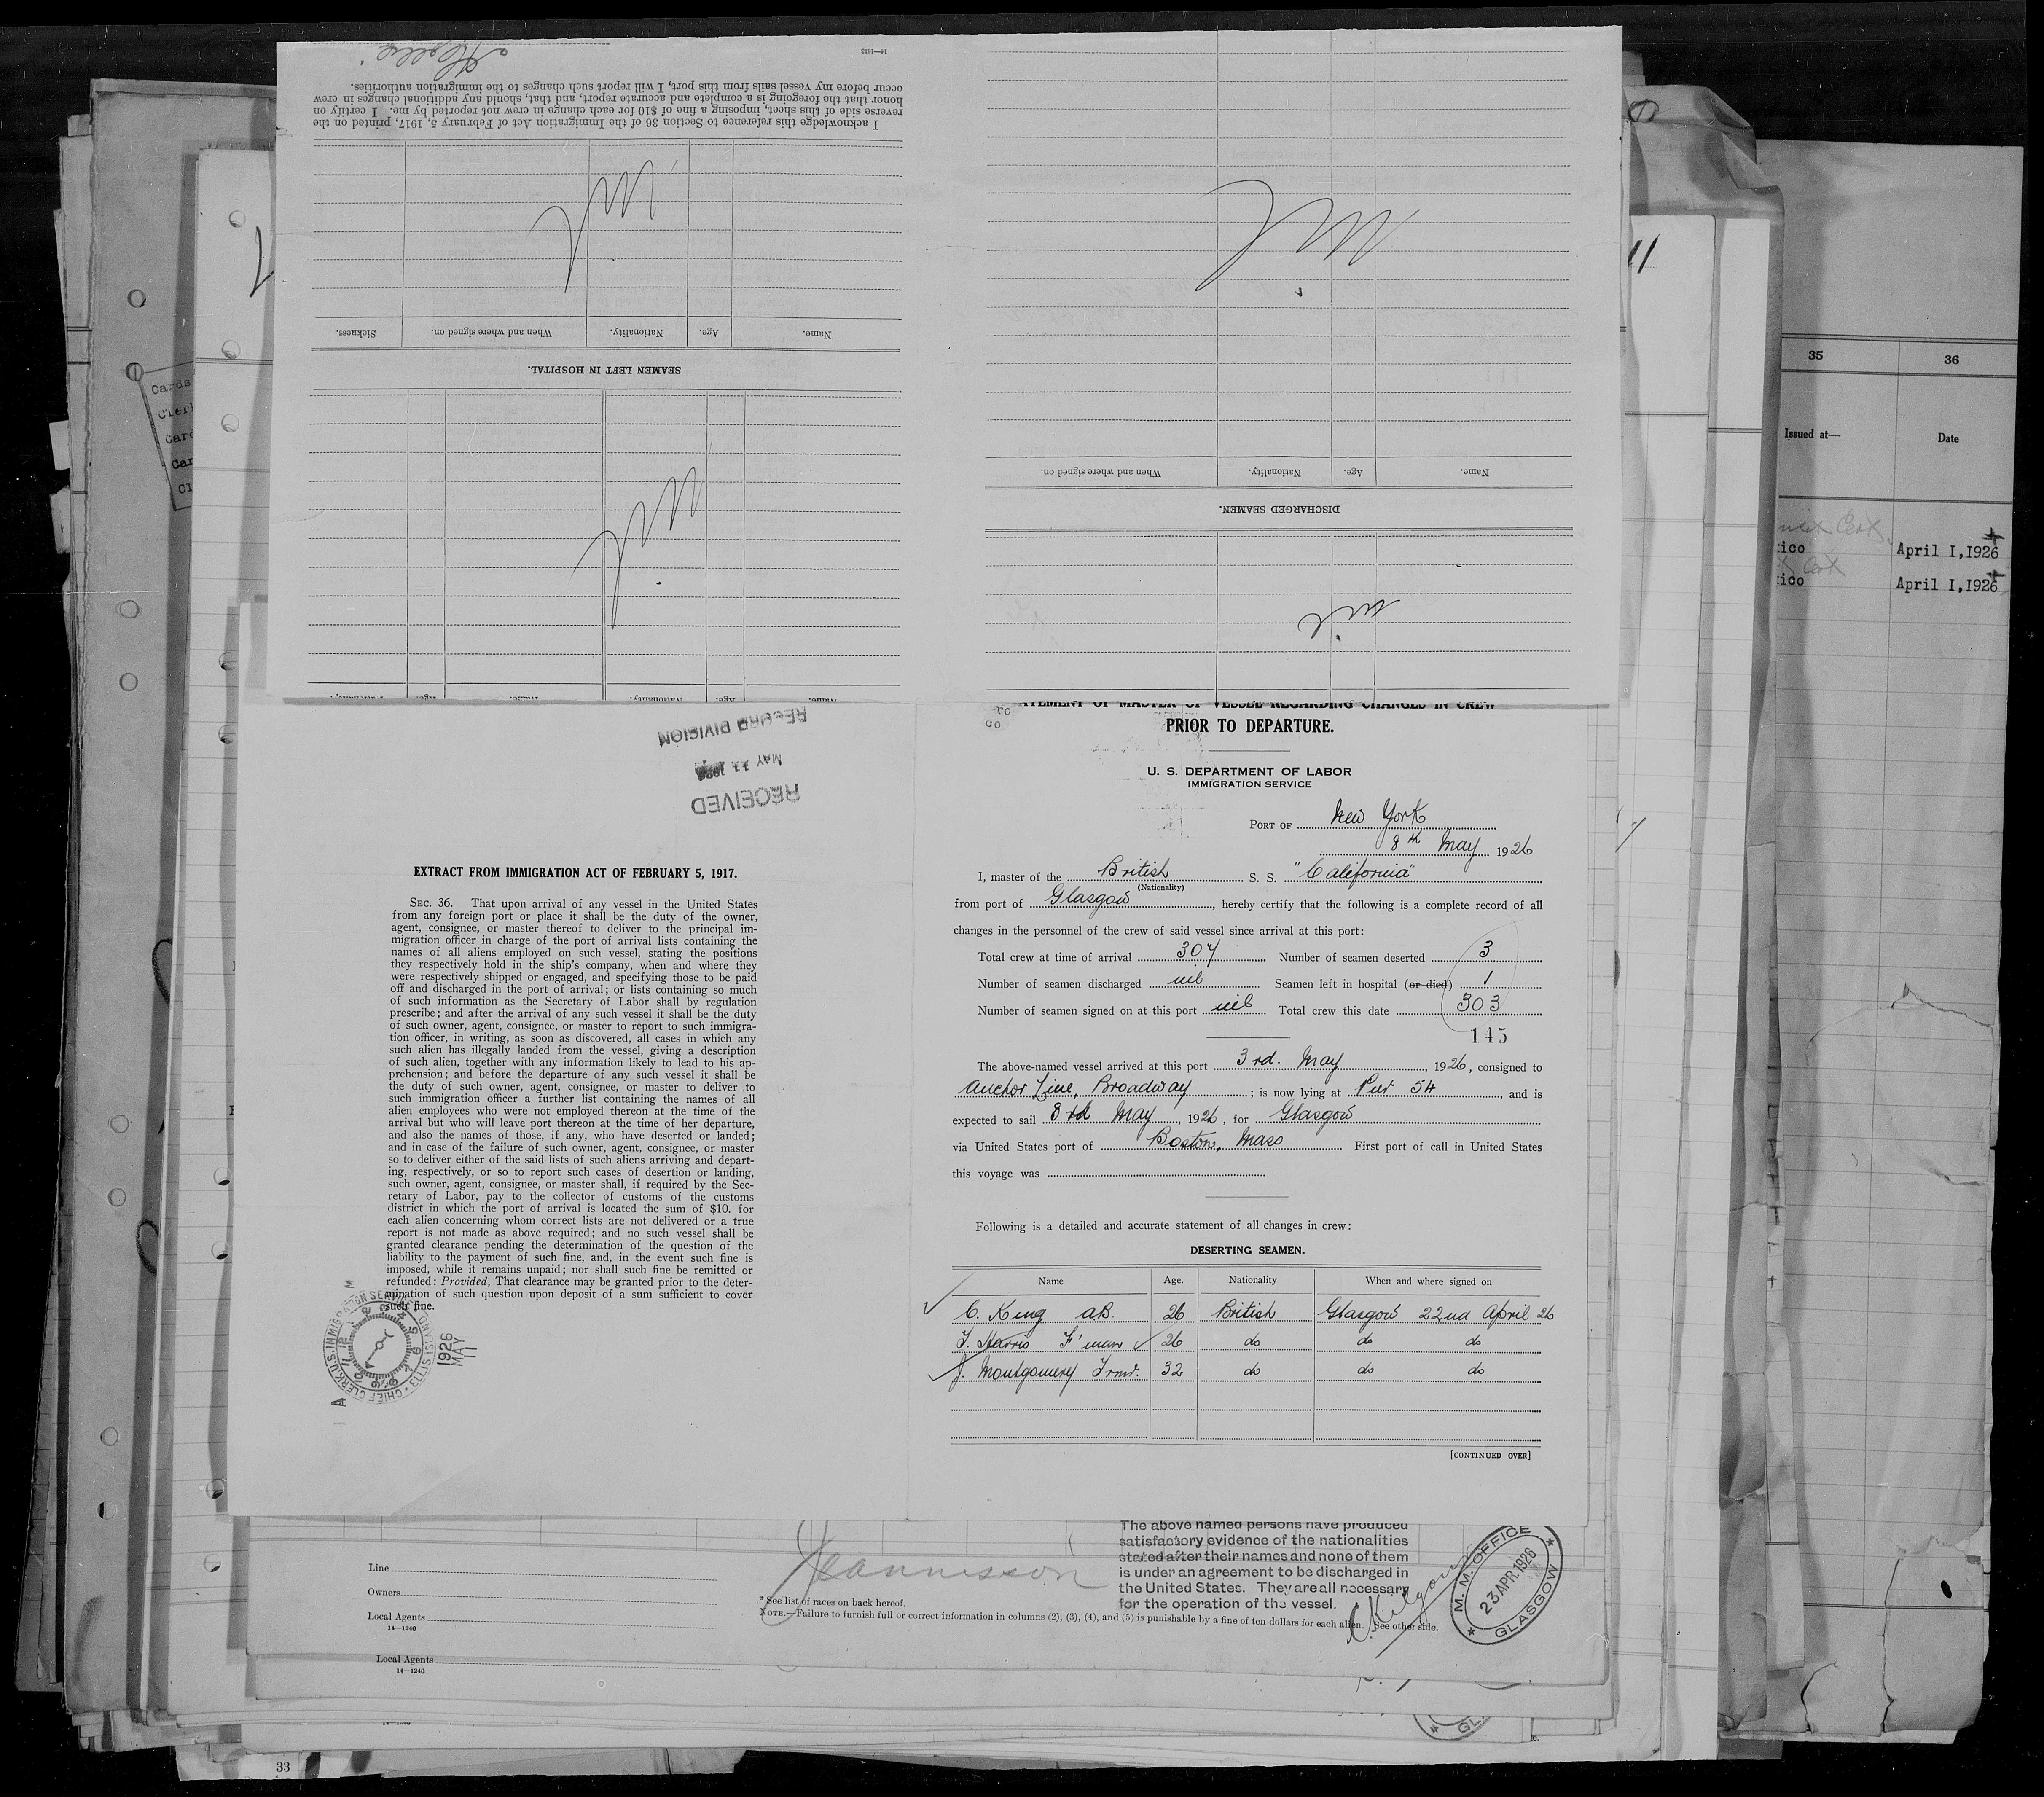 I acknowledge this reference to Section 36 of the Immigration Act of February 5, 1917, printed on the
reverse side of this sheet, imposing a fine of $10 for each change in crew not reported by me. I certify on
honor that the foregoing is a complete and accurate report, and that, should any additional changes in crew
occur before my vessel sails from this port, I will report such changes to the immigration authorities.
Name. Age. Nationality. When and where signed on. Sickness.
Nil
SEAMEN LEFT IN HOSPITAL.
Nil
Name. Age. Nationality. When and where signed on.
Nil
DISCHARGED SEAMEN.
nil
35 36
Issued at— Date
April 1,1926
April 1,1926
RECEIVED
MAY 11 1926
RECORD DIVISION
EXTRACT FROM IMMIGRATION ACT OF FEBRUARY 5, 1917.
SEC. 36. That upon arrival of any vessel in the United States
from any foreign port or place it shall be the duty of the owner,
agent, consignee, or master thereof to deliver to the principal im-
migration officer in charge of the port of arrival lists containing the
names of all aliens employed on such vessel, stating the positions
they respectively hold in the ship's company, when and where they
were respectively shipped or engaged, and specifying those to be paid
off and discharged in the port of arrival; or lists containing so much
of such information as the Secretary of Labor shall by regulation
prescribe; and after the arrival of any such vessel it shall be the duty
of such owner, agent, consignee, or master to report to such immigra-
tion officer, in writing, as soon as discovered, all cases in which any
such alien has illegally landed from the vessel, giving a description
of such alien, together with any information likely to lead to his ap-
prehension; and before the departure of any such vessel it shall be
the duty of such owner, agent, consignee, or master to deliver to
such immigration officer a further list containing the names of all
alien employees who were not employed thereon at the time of the
arrival but who will leave port thereon at the time of her departure,
and also the names of those, if any, who have deserted or landed;
and in case of the failure of such owner, agent, consignee, or master
so to deliver either of the said lists of such aliens arriving and depart-
ing, respectively, or so to report such cases of desertion or landing,
such owner, agent, consignee, or master shall, if required by the Sec-
retary of Labor, pay to the collector of customs of the customs
district in which the port of arrival is located the sum of $10. for
each alien concerning whom correct lists are not delivered or a true
report is not made as above required; and no such vessel shall be
granted clearance pending the determination of the question of the
liability to the payment of such fine, and, in the event such fine is
imposed, while it remains unpaid; nor shall such fine be remitted or
refunded: Provided, That clearance may be granted prior to the deter-
mination of such question upon deposit of a sum sufficient to cover
such fine.
CHIEF CLERK U.S. IMMIGRATION SERVICE ELLIS ISLAND
1926 MAY 11
STATEMENT OF MASTER OF VESSEL REGARDING CHANGES IN CREW
PRIOR TO DEPARTURE.
U. S. DEPARTMENT OF LABOR
IMMIGRATION SERVICE
PORT OF New York
8th May 1926
I, master of the British S. S. "California"
(Nationality)
from port of Glasgow, hereby certify that the following is a complete record of all
changes in the personnel of the crew of said vessel since arrival at this port:
Total crew at time of arrival 307 Number of seamen deserted 3
Number of seamen discharged nil Seamen left in hospital (or died) 1
Number of seamen signed on at this port nil Total crew this date 303
145
The above-named vessel arrived at this port 3rd. May, 1926, consigned to
Anchor Line, Broadway; is now lying at Pier 54, and is
expected to sail 8th May, 1926, for Glasgow
via United States port of Boston, Mass First port of call in United States
this voyage was
Following is a detailed and accurate statement of all changes in crew:
DESERTING SEAMEN.
Name Age. Nationality When and where signed on
C. King AB. 26 British Glasgow 22nd April 26
T. Harris F'man 26 do do do
J. Montgomery Trmr. 32 do do do
[CONTINUED OVER]
The above named persons have produced
satisfactory evidence of the nationalities
stated after their names and none of them
is under an agreement to be discharged in
the United States. They are all necessary
for the operation of the vessel.
M. M. OFFICE
23 APR 1926
GLASGOW
Line
Owners
Local Agents
14—1240
* See list of races on back hereof.
NOTE.—Failure to furnish full or correct information in columns (2), (3), (4), and (5) is punishable by a fine of ten dollars for each alien. See other side.
Local Agents
14—1240
33